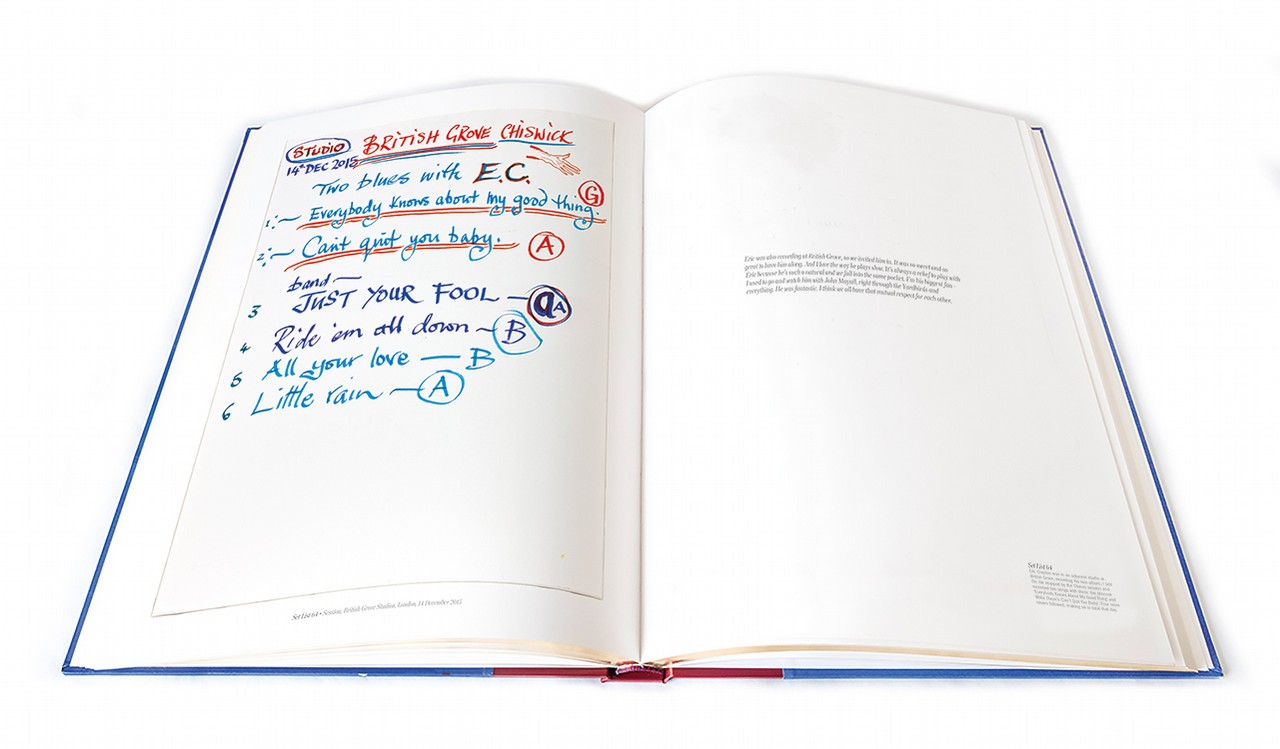 STUDIO BRITISH GROVE CHISWICK
14th DEC 2015
Two blues with E.C.
1:~ Everybody knows about my good thing. G
2:~ Can't quit you baby. A
band —
3 JUST YOUR FOOL — A
4 Ride 'em all down ~ B
5 All your love — B
6 Little rain — A
Set List 64 • Session, British Grove Studios, London, 14 December 2015
Eric was also recording at British Grove, so we invited him in. It was so sweet and so
great to have him along. And I love the way he plays slow. It's always a relief to play with
Eric because he's such a natural and we fall into the same pocket. I'm his biggest fan –
I used to go and watch him with John Mayall, right through the Yardbirds and
everything. He was fantastic. I think we all have that mutual respect for each other.
Set List 64